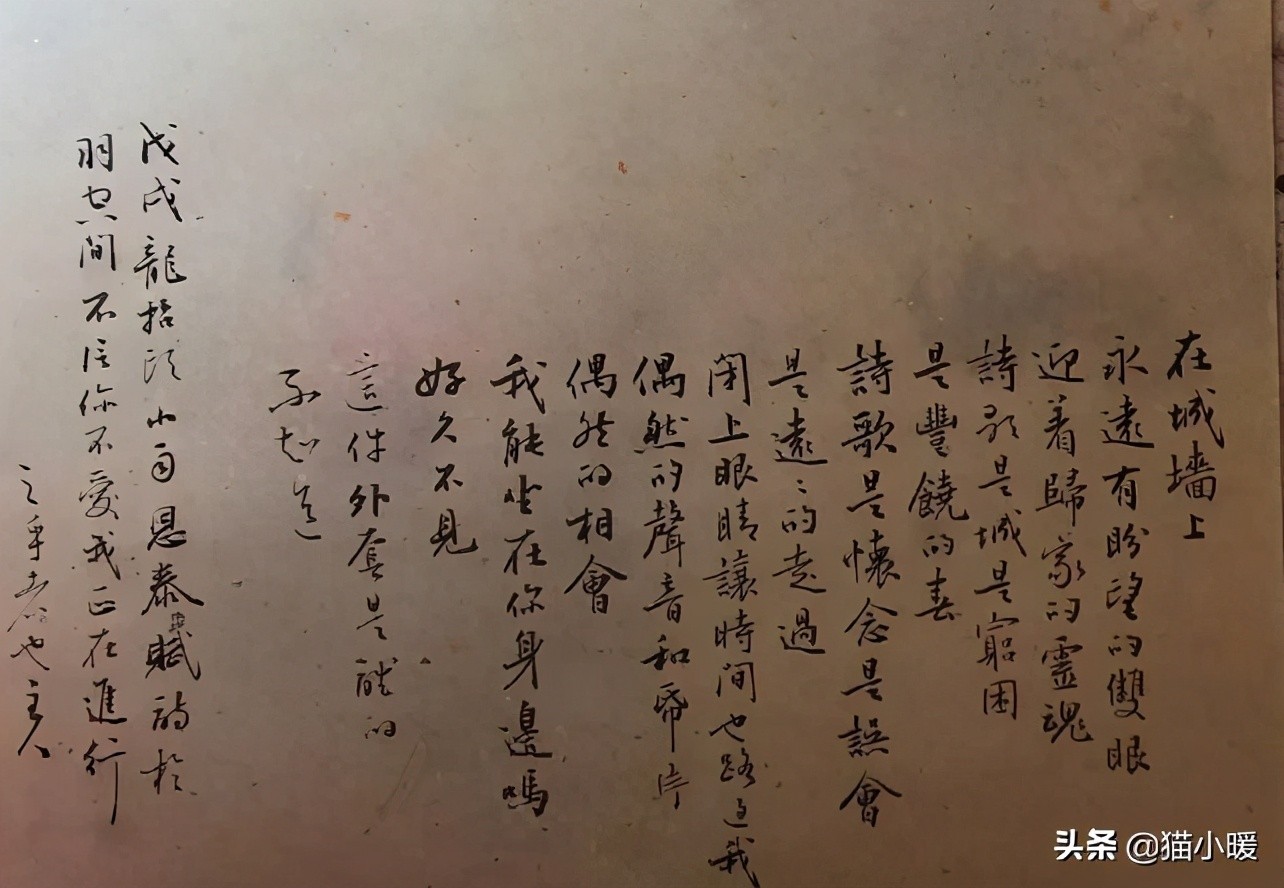 在城墻上
永遠有盼望的雙眼
迎着歸家的靈魂
詩歌是城是窮困
是豐饒的春
詩歌是懷念是誤會
是遠〻的走過
閉上眼睛讓時间也路过我
偶然的聲音和
偶然的相會
我能坐在你身邊嗎
好久不見
這件外套是誰的
不知道
戊戌龍抬頭小雨恩泰賦詩於
羽間不信你不愛我正在進行
也主人
头条 @猫小暖